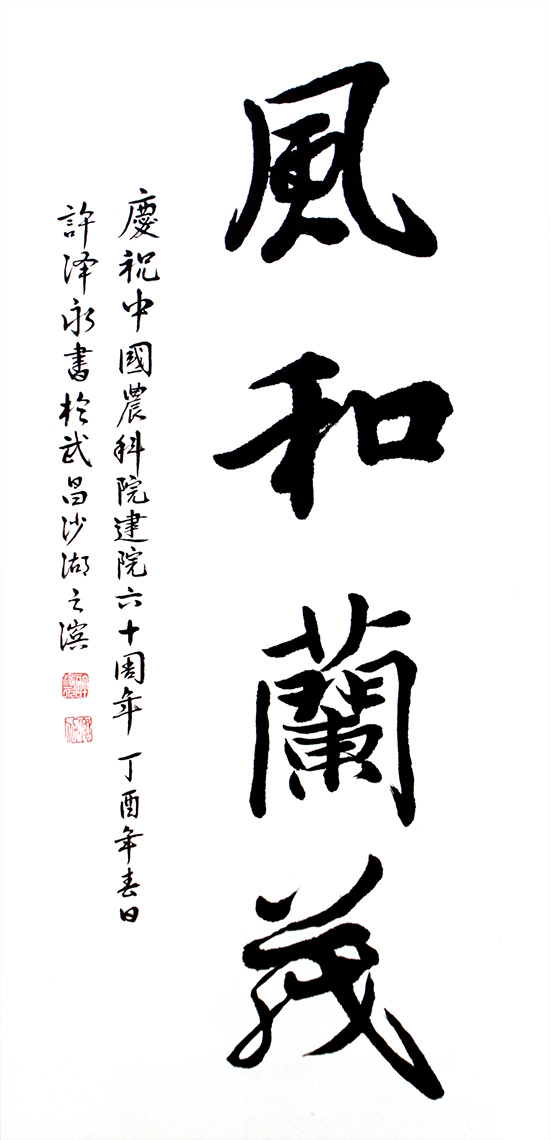 風和蘭茂
慶祝中國農科院建院六十周年 丁酉年春日
許泽永書於武昌沙湖之滨